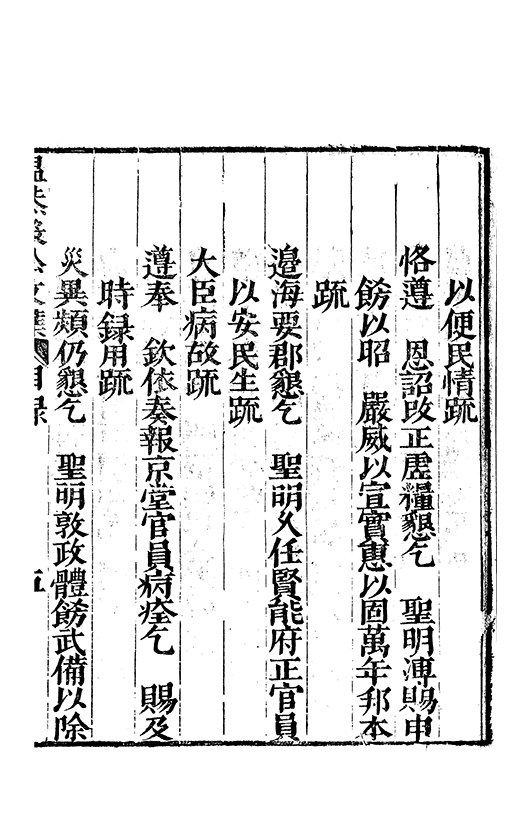 以便民情疏
恪遵　恩詔改正虛糧懇乞　聖明溥賜申
飭以昭　嚴威以宣實惠以固萬年邦本
疏
邊海要郡懇乞　聖明久任賢能府正官員
以安民生疏
大臣病故疏
遵奉　欽依奏報京堂官員病痊乞　賜及
時録用疏
災異頻仍懇乞　聖明敦政體飭武備以除
公文　目録　五